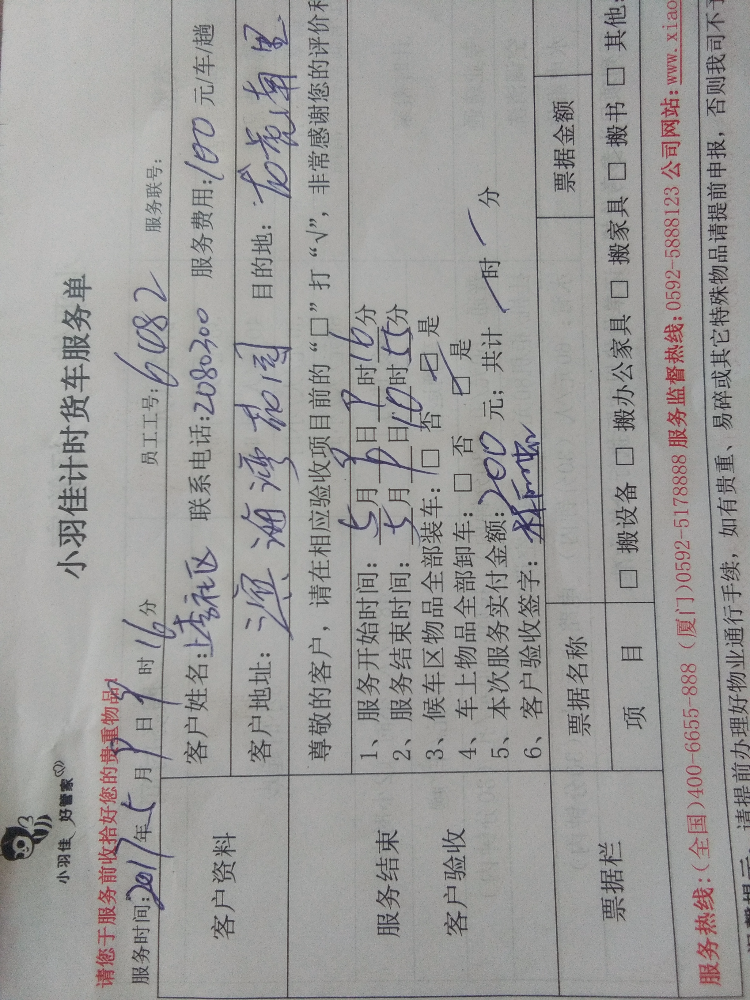 小羽佳 好管家
小羽佳计时货车服务单
请您于服务前收拾好您的贵重物品!
服务时间:2017年5月9日9时16分 员工工号:6082 服务联号:
客户资料
客户姓名: 社区 联系电话:2080300 服务费用:100元/车/趟
客户地址:滨海湾花园 目的地: 南里
尊敬的客户，请在相应验收项目前的“□”打“√”，非常感谢您的评价和
服务结束
客户验收
1、服务开始时间:5月9日9时16分
2、服务结束时间:5月9日10时55分
3、候车区物品全部装车:□否 □是
4、车上物品全部卸车:□否 □是
5、本次服务实付金额:200元；共计 时 分
6、客户验收签字:
票据栏
票据名称 票据金额
项 目 □搬设备 □搬办公家具 □搬家具 □搬书 □其他:
服务热线:(全国)400-6655-888 (厦门)0592-5178888 服务监督热线:0592-5888123 公司网站:www.xiao
请提前办理好物业通行手续，如有贵重、易碎或其它特殊物品请提前申报，否则我司不予